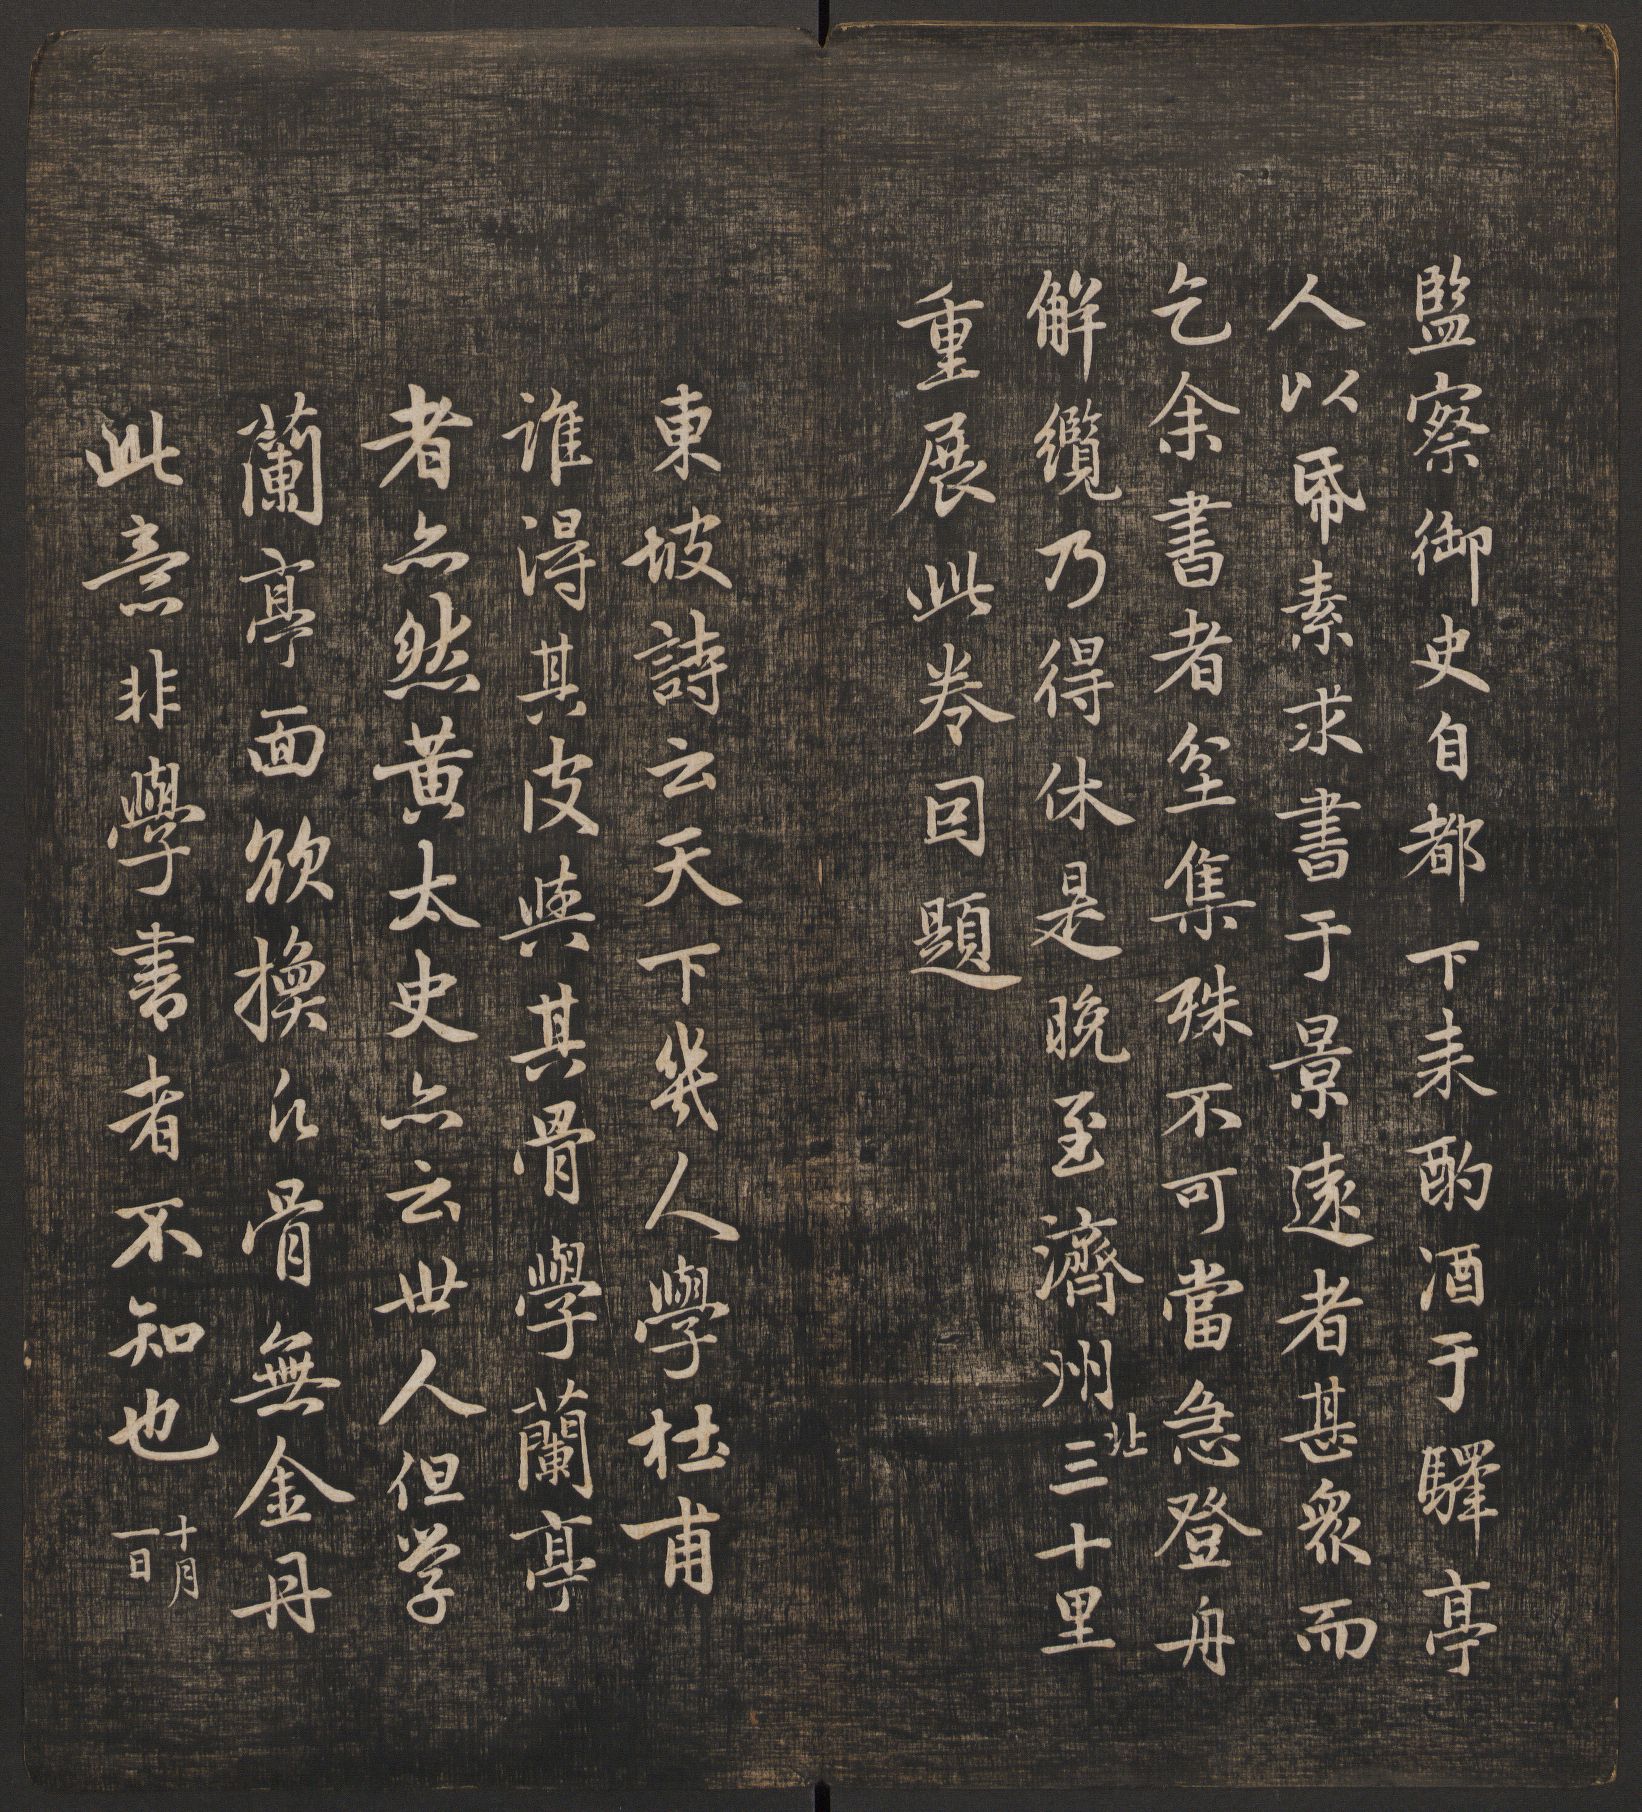 監察御史自都下來酌酒于驛亭
人以帋素求書于景遠者甚衆而
乞余書者坌集殊不可當急登舟
解纜乃得休是晚至濟州北三十里
重展此卷囙題
東坡詩云天下幾人學杜甫
誰淂其皮與其骨學蘭亭
者亦然黃太史亦云世人但学
蘭亭面欲換凡骨無金丹
此意非學書者不知也十月一日